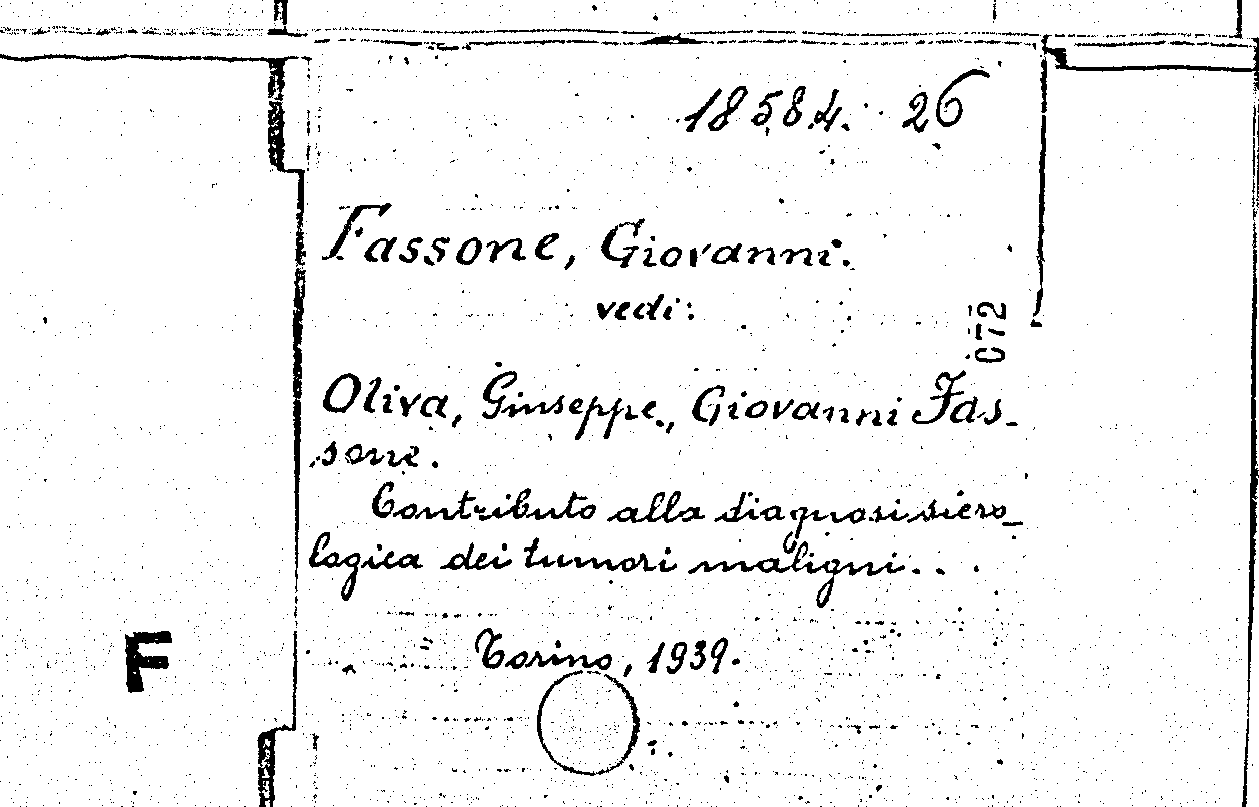 18584. 26
Fassone, Giovanni.
vedi:
072
Oliva, Giuseppe, Giovanni Fas-
sone.
Contributo alla diagnosi siero-
logica dei tumori maligni...
F
Torino, 1939.